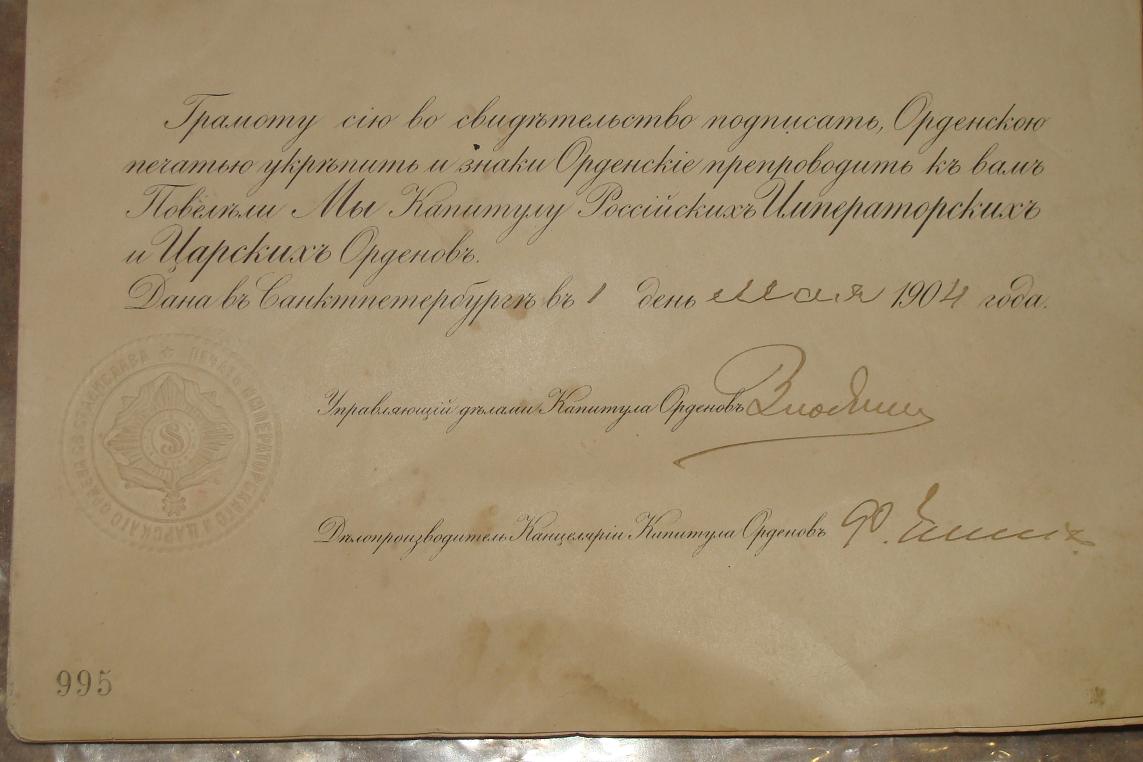 Грамоту сію во свидѣтельство подписать, Орденскою
печатью укрѣпить и знаки Орденскіе препроводить къ вамъ
Повелѣли Мы Капитулу Россійскихъ Императорскихъ
и Царскихъ Орденовъ.
Дана въ Санктпетербургѣ въ 1 день мая 1904 года.
ПЕЧАТЬ ИМПЕРАТОРСКАГО И ЦАРСКАГО ОРДЕНА СВ. СТАНИСЛАВА
SS
Управляющій дѣлами Капитула Орденовъ
Дѣлопроизводитель Канцеляріи Капитула Орденовъ
995